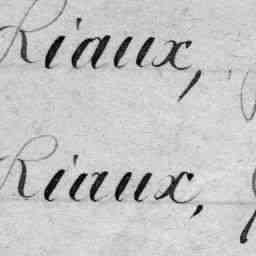 Riaux,
Riaux,